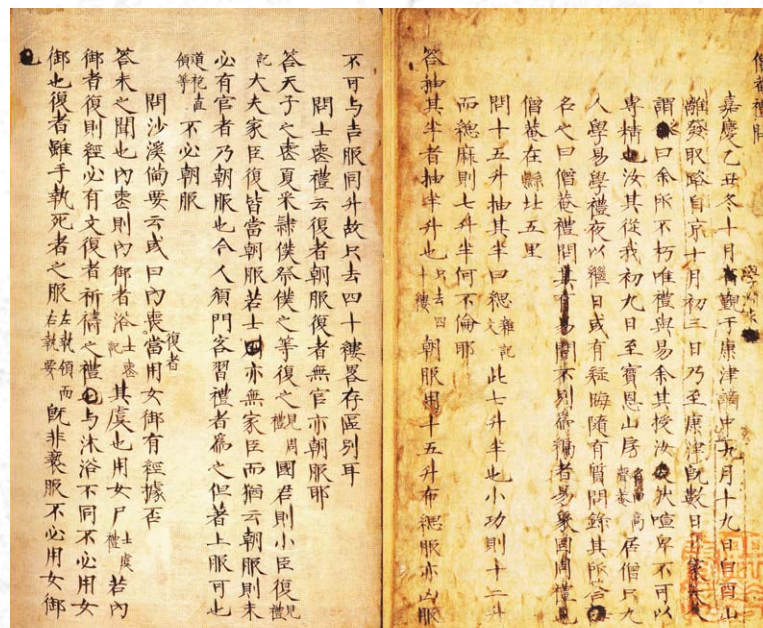 僧菴禮問
嘉慶乙丑冬十月 覲于康津謫中九月十九日自酉山
離發取路自京十月初三日乃至康津旣數日
謂 曰余所不朽唯禮與易余其授汝 然喧卑不可以
專精也汝其從我初九日至寶恩山房 居僧只九
人學易學禮夜以繼日或有疑晦隨有質問錄其所答
名之曰僧菴禮問其有易問不別爲編者易象固周禮也
僧菴在縣北五里
問十五升抽其半曰緦雜記文此七升半也小功則十二升
而緦麻則七升半何不倫耶
答抽其半者抽半升也只去四十縷朝服用十五升布緦服亦凶服
不可与吉服同升故只去四十縷畧存區別耳
問士喪禮云復者朝服復者無官亦朝服耶
答天子之喪夏采隷僕祭僕之等復之見周禮國君則小臣復見禮
記大夫家臣復皆當朝服若士 亦無家臣而猶云朝服則未
必有官者乃朝服也今人須門客習禮者爲之但著上服可也
道袍直領等不必朝服
問沙溪備要云或曰內喪復者當用女御有經據否
答未之聞也內喪則內御者浴士喪記其虞也用女尸士虞禮若內
御者復則經必有文復者祈禱之禮 与沐浴不同不必用女
御也復者雖手執死者之服左執領而右執要旣非褻服不必用女御
也